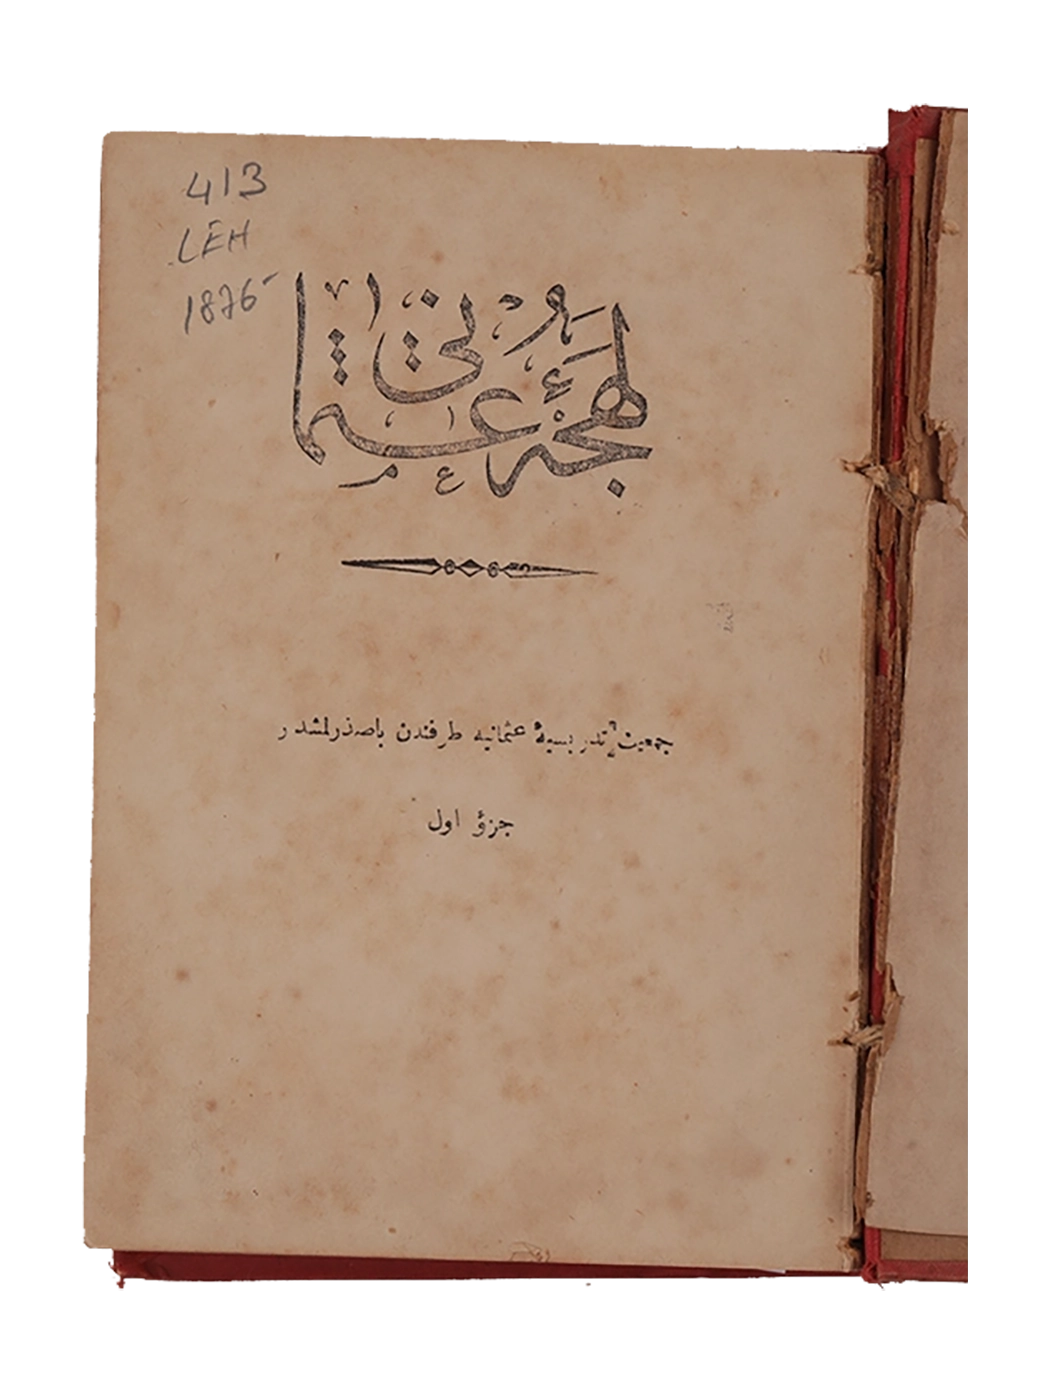 413
LEH
1876
لهجهٔ عثمانی
جمعیت تدریسیهٔ عثمانیه طرفندن باصدرلمشدر
جزؤ اول